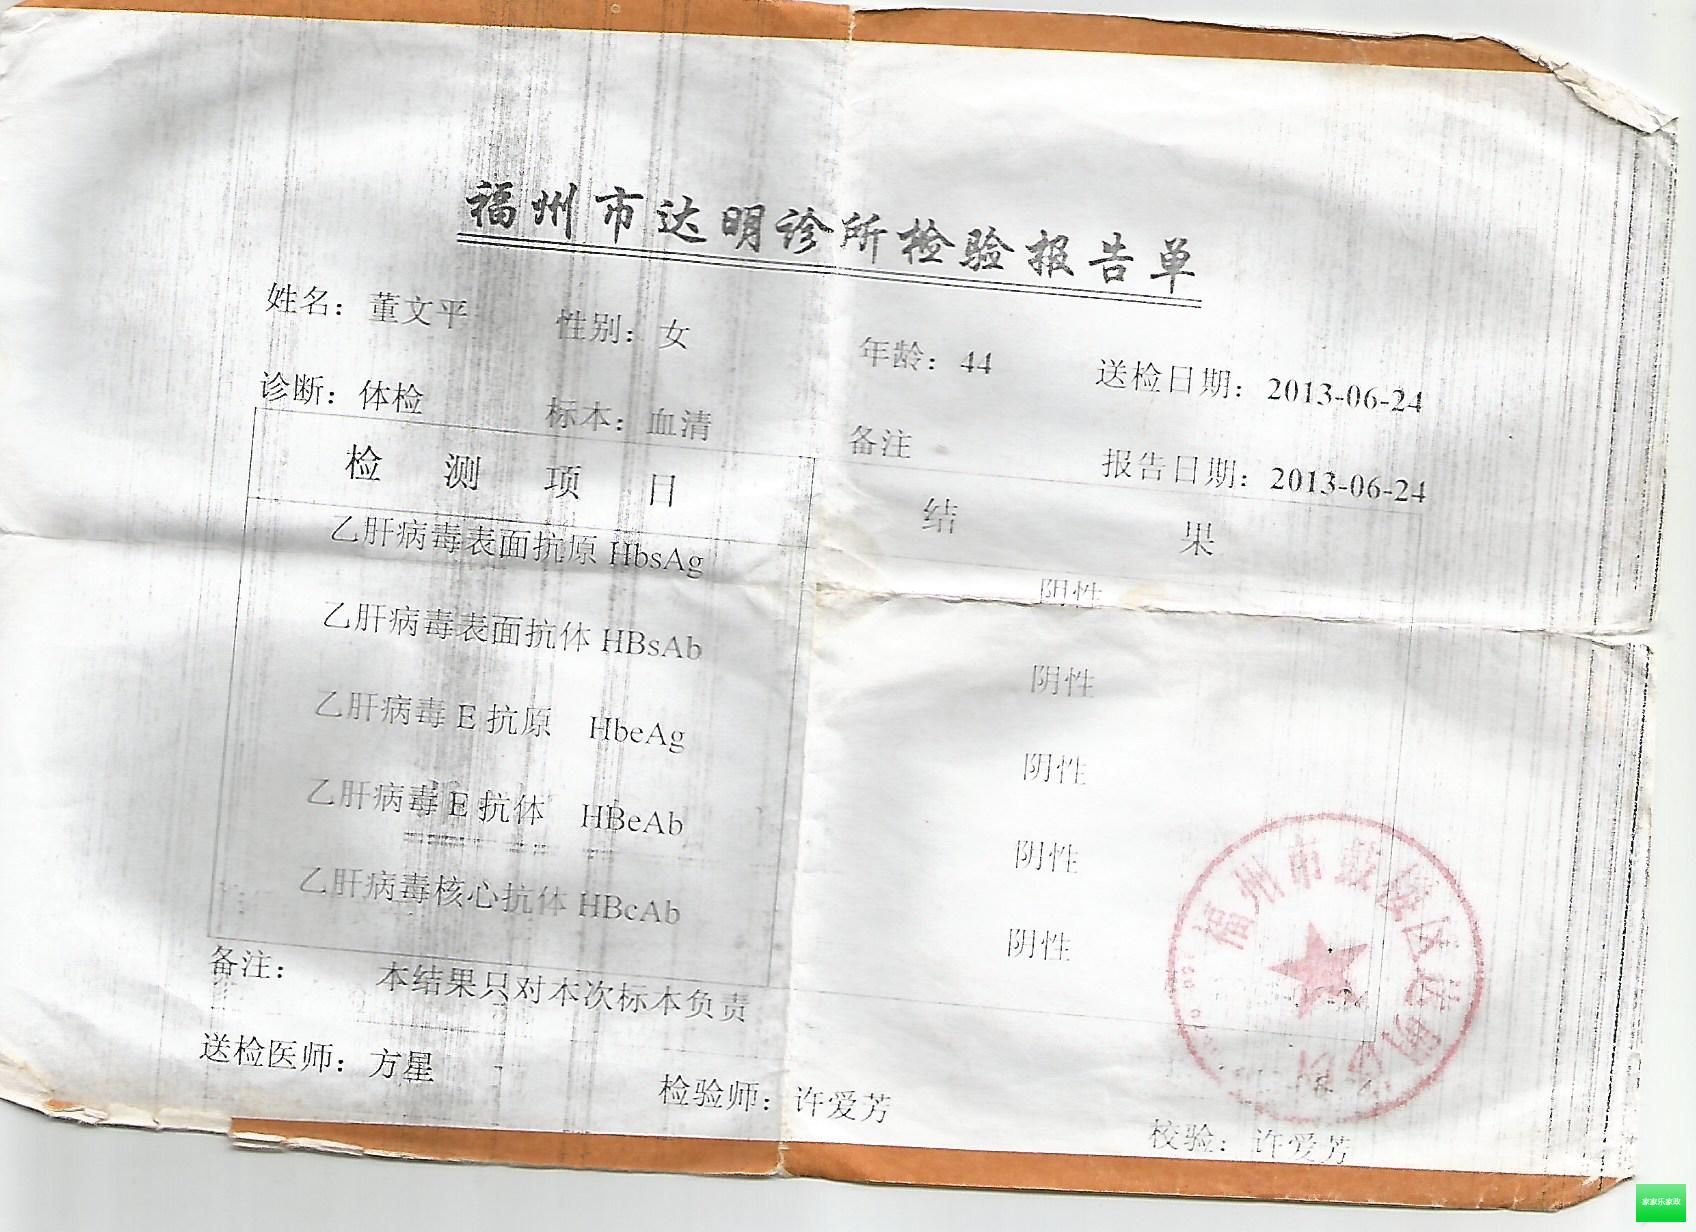 福州市达明诊所检验报告单
姓名：董文平 性别：女 年龄：44 送检日期：2013-06-24
诊断：体检 标本：血清 备注 报告日期：2013-06-24
检 测 项 目 结 果
乙肝病毒表面抗原 HbsAg 阴性
乙肝病毒表面抗体 HBsAb 阴性
乙肝病毒 E 抗原 HbeAg 阴性
乙肝病毒 E 抗体 HBeAb 阴性
乙肝病毒核心抗体 HBcAb 阴性
备注： 本结果只对本次标本负责
送检医师：方星 检验师：许爱芳 校验：许爱芳
福州市鼓楼区达明诊所
家家乐家政